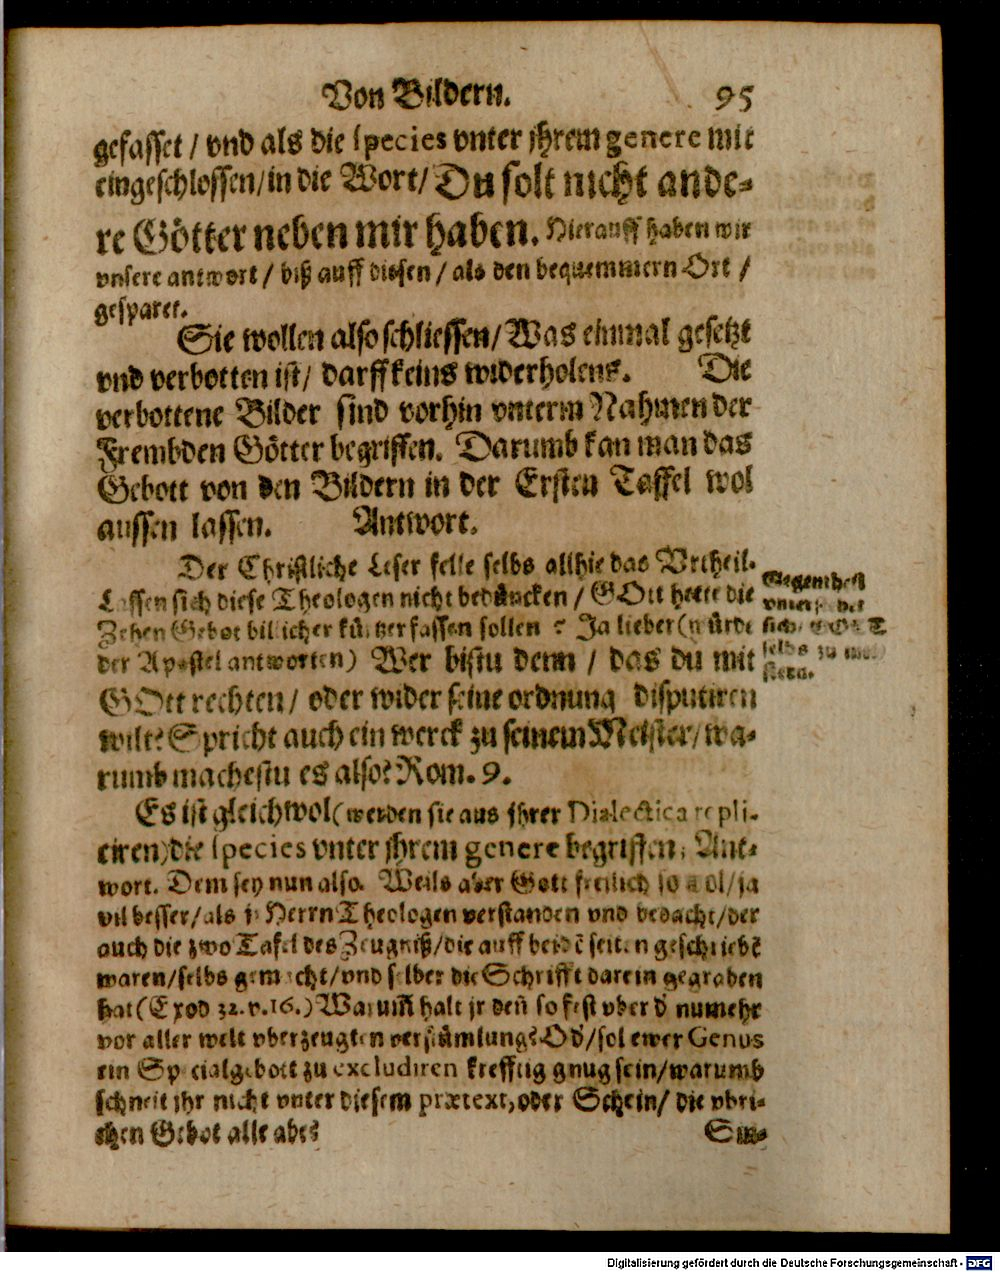 Von Bildern. 95
gefasset / vnd als die species vnter jhrem genere mit
eingeschlossen/in die Wort/ Du solt nicht ande-
re Götter neben mir haben. Hierauff haben wir
vnsere antwort / biß auff diesen / als den bequemmern Ort /
gesparet.
Sie wollen also schliessen/ Was einmal gesetzt
vnd verbotten ist/ darff keins widerholens. Die
verbottene Bilder sind vorhin vnterm Nahmen der
Frembden Götter begriffen. Darumb kan man das
Gebott von den Bildern in der Ersten Taffel wol
aussen lassen. Antwort.
Der Christliche Leser felle selbs allhie das Vrtheil.
Lassen sich diese Theologen nicht bedüncken / GOtt hette die
Zehen Gebot billicher kürtzer fassen sollen ? Ja lieber (würde
der Apostel antworten) Wer bistu denn / das du mit
GOtt rechten / oder wider seine ordnung disputiren
wilt? Spricht auch ein werck zu seinem Meister/ wa-
rumb machestu es also? Rom. 9.
Gegenheit
vnter der
GOTT
selbs zu
Es ist gleichwol (werden sie aus jhrer Dialectica repli-
ciren) die species vnter jhrem genere begriffen. Ant-
wort. Dem sey nun also. Weils aber Gott freilich so wol/ja
vil besser/als jr Herrn Theologen verstanden vnd bedacht/der
auch die zwo Tafel des Zeugniß/die auff beidẽ seiten geschriebẽ
waren/selbs gemacht/vnd selber die Schrifft darein gegraben
hat (Exod 32. v.16.) Warum̃ halt jr deñ so fest vber d' numehr
vor aller welt vberzeugten verstümlung? Od'/sol ewer Genus
ein Specialgebott zu excludiren krefftig gnug sein/warumb
schneit jhr nicht vnter diesem prætext, oder Schein/ die vbri-
chen Gebot alle abe?
Sin-
Digitalisierung gefördert durch die Deutsche Forschungsgemeinschaft - DFG